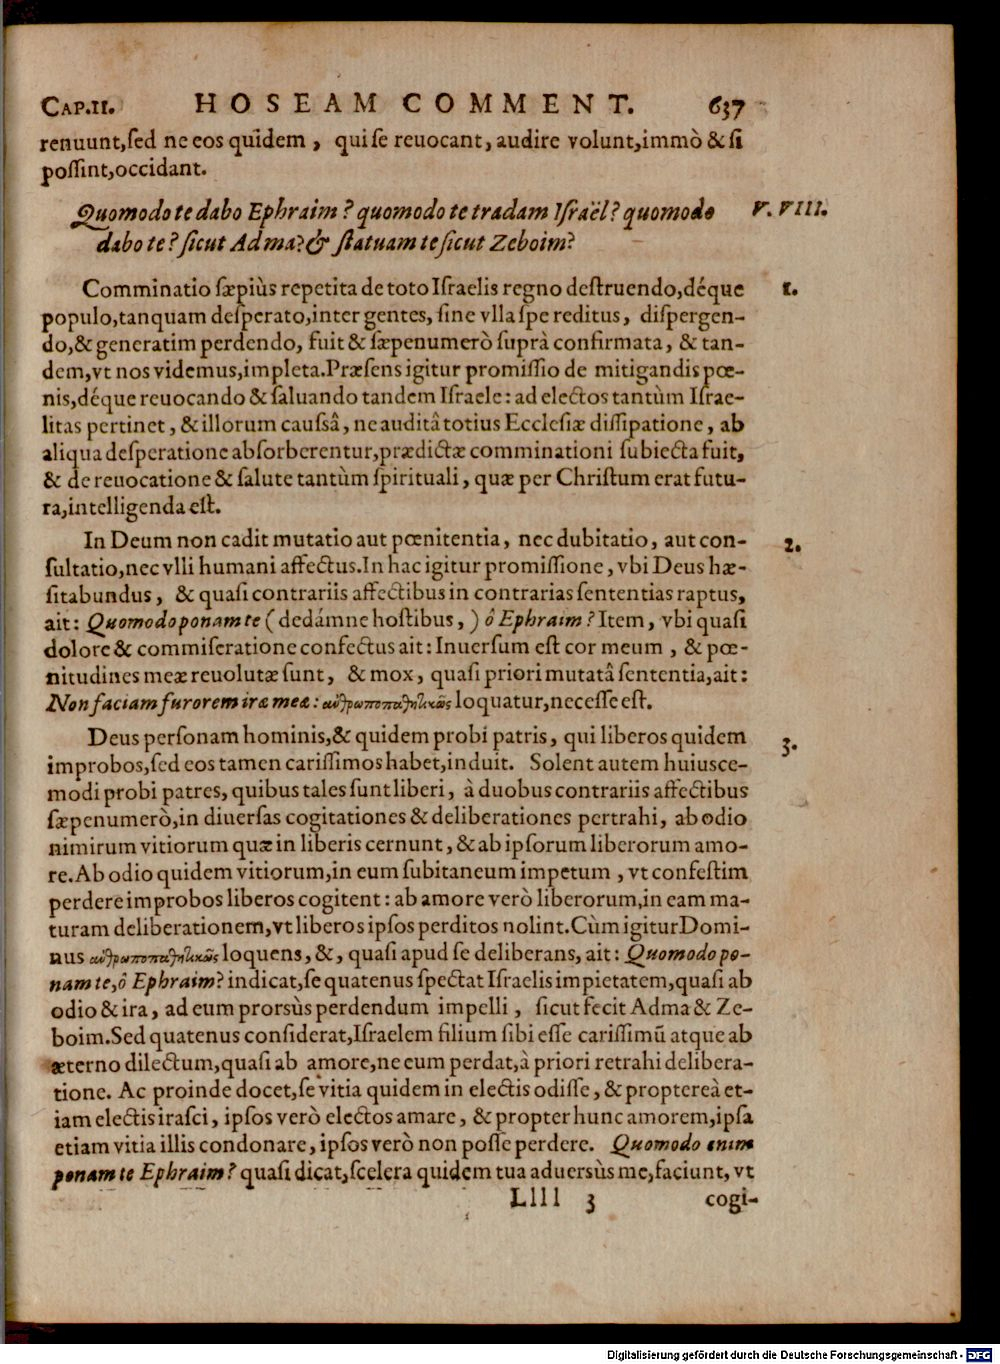 CAP.II. HOSEAM COMMENT. 637
renuunt,sed ne eos quidem , qui se reuocant, audire volunt,immò & si
possint,occidant.
Quomodo te dabo Ephraim ? quomodo te tradam Israël? quomodo V. VIII.
dabo te ? sicut Adma? & statuam te sicut Zeboim?
Comminatio sæpiùs repetita de toto Israelis regno destruendo,déque 1.
populo,tanquam desperato,inter gentes, sine vlla spe reditus, dispergen-
do,& generatim perdendo, fuit & sæpenumerò suprà confirmata, & tan-
dem,vt nos videmus,impleta.Præsens igitur promissio de mitigandis pœ-
nis,déque reuocando & saluando tandem Israele: ad electos tantùm Israe-
litas pertinet , & illorum caussâ, ne auditâ totius Ecclesiæ dissipatione, ab
aliqua desperatione absorberentur,prædictæ comminationi subiecta fuit,
& de reuocatione & salute tantùm spirituali, quæ per Christum erat futu-
ra,intelligenda est.
In Deum non cadit mutatio aut pœnitentia, nec dubitatio, aut con- 2.
sultatio,nec vlli humani affectus.In hac igitur promissione, vbi Deus hæ-
sitabundus, & quasi contrariis affectibus in contrarias sententias raptus,
ait: Quomodo ponam te ( dedámne hostibus, ) ô Ephraim ? Item, vbi quasi
dolore & commiseratione confectus ait: Inuersum est cor meum , & pœ-
nitudines meæ reuolutæ sunt, & mox, quasi priori mutatâ sententia,ait:
Non faciam furorem iræ meæ: ἀνθρωποπαθητικῶς loquatur,necesse est.
Deus personam hominis,& quidem probi patris, qui liberos quidem 3.
improbos,sed eos tamen carissimos habet,induit. Solent autem huiusce-
modi probi patres, quibus tales sunt liberi, à duobus contrariis affectibus
sæpenumerò,in diuersas cogitationes & deliberationes pertrahi, ab odio
nimirum vitiorum quæ in liberis cernunt, & ab ipsorum liberorum amo-
re. Ab odio quidem vitiorum,in eum subitaneum impetum , vt confestim
perdere improbos liberos cogitent: ab amore verò liberorum,in eam ma-
turam deliberationem,vt liberos ipsos perditos nolint.Cùm igitur Domi-
nus ἀνθρωποπαθητικῶς loquens, &, quasi apud se deliberans, ait: Quomodo po-
nam te,ô Ephraim? indicat,se quatenus spectat Israelis impietatem,quasi ab
odio & ira, ad eum prorsùs perdendum impelli, sicut fecit Adma & Ze-
boim.Sed quatenus considerat,Israelem filium sibi esse carissimũ atque ab
æterno dilectum,quasi ab amore,ne eum perdat,à priori retrahi delibera-
tione. Ac proinde docet,se vitia quidem in electis odisse, & proptereà et-
iam electis irasci, ipsos verò electos amare, & propter hunc amorem,ipsa
etiam vitia illis condonare, ipsos verò non posse perdere. Quomodo enim
ponam te Ephraim? quasi dicat,scelera quidem tua aduersùs me,faciunt, vt
Llll 3 cogi-
Digitalisierung gefördert durch die Deutsche Forschungsgemeinschaft - DFG